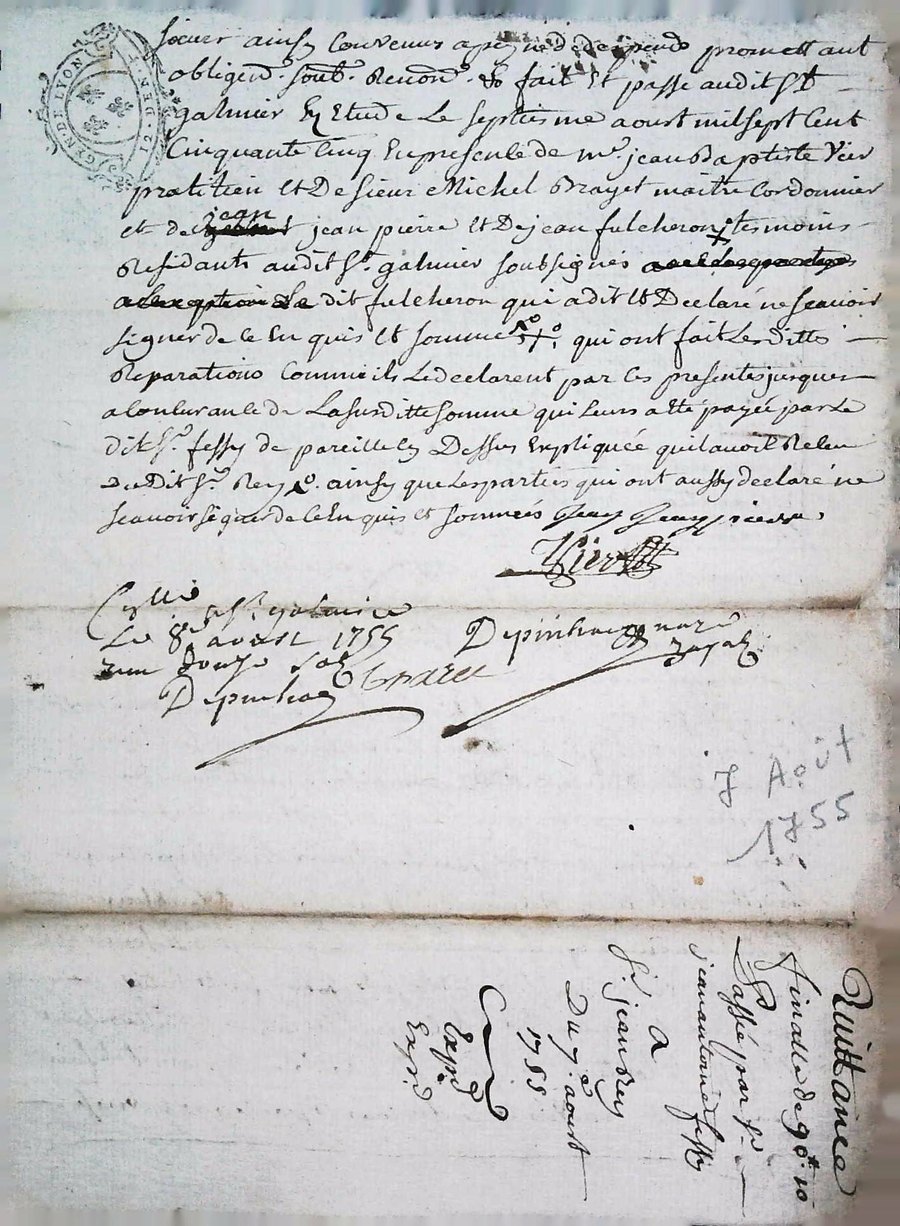 GEN. DE LYON
ainsy Convenus a peyne de despends promettant
obligend. soub. Renon. &c fait Et passé audit St
galmier En Etude Le septiesme aoust mil sept Cent
Cinquante Cinq En presence de me. jean Baptiste Vier
pratitien Et De sieur Michel Brayet maitre Cordonnier
et de jean jean pierre Et De jean fulcheron, tesmoins
Residants audit St. galmier soubsignés
dit fulcheron qui a dit Et Declaré ne scavoir
signer de ce Enquis Et sommé qui ont fait Lesdittes
Reparations Comme ils Le declarent par Ces presentes jusques
a Concurance de La susditte somme qui Leurs a Eté payée par Le
dit Sr. fessy de pareille Cy Dessus Expliquée qu'il avoit Receu
du Dit Sr. Rey ainsy que Les parties qui ont aussy declaré ne
scavoir signer de Ce Enquis Et sommés Jean pierre.
Vier
Cllé a St. galmier
Le 8e aoust 1755
Reçu douze sols
Depinhac
Depinhac
7 Août
1755
Quittance
finalle de 90# 10
Passé par sr.
jean antoine fessy
A
Sr. jean Rey
Du 7e. aoust
1755
Expd
Expd